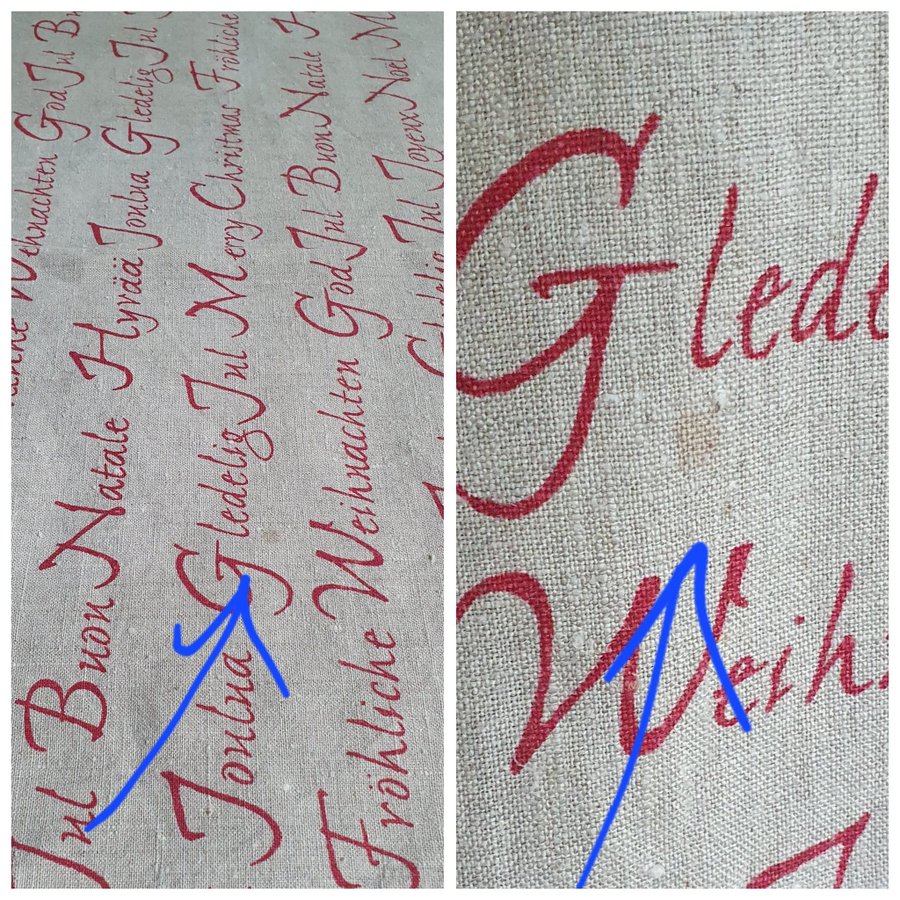 Weihnachten God Jul B
Jul Buon Natale Hyvää Joulua Gledelig Jul
Joulua Gledelig Jul Merry Christmas Fröhliche
Fröhliche Weihnachten God Jul Buon Natale H
Gledelig Jul Joyeux Noël M
Glede
Weih